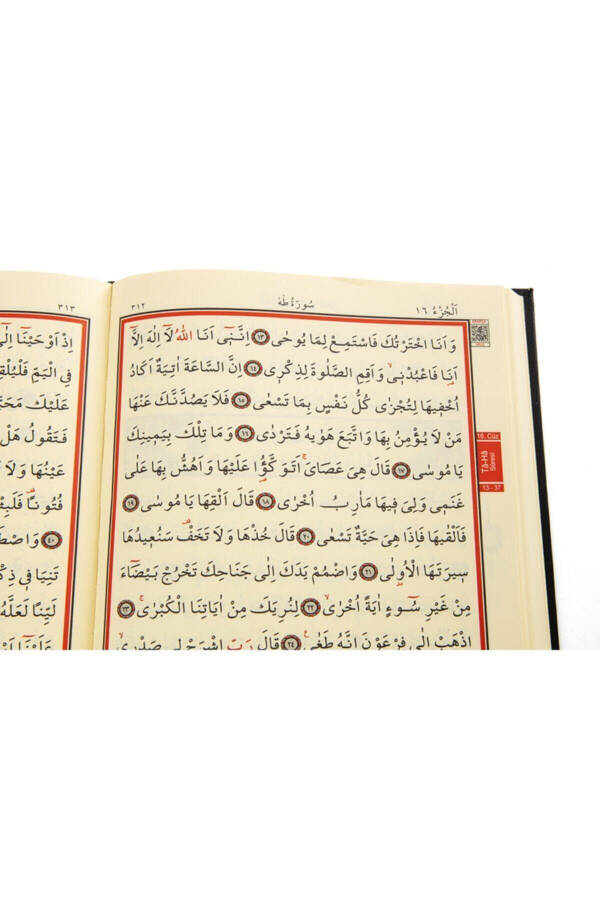 اَلْجُزْءُ ١٦ سُورَةُ طٰهٰ ٣١٢
وَاَنَا اخْتَرْتُكَ فَاسْتَمِعْ لِمَا يُوحٰى ﴿١٣﴾ اِنَّنٖٓي اَنَا اللّٰهُ لَٓا اِلٰهَ اِلَّٓا
اَنَا۬ فَاعْبُدْنٖيۙ وَاَقِمِ الصَّلٰوةَ لِذِكْرٖي ﴿١٤﴾ اِنَّ السَّاعَةَ اٰتِيَةٌ اَكَادُ
اُخْفٖيهَا لِتُجْزٰى كُلُّ نَفْسٍ بِمَا تَسْعٰى ﴿١٥﴾ فَلَا يَصُدَّنَّكَ عَنْهَا
مَنْ لَا يُؤْمِنُ بِهَا وَاتَّبَعَ هَوٰيهُ فَتَرْدٰى ﴿١٦﴾ وَمَا تِلْكَ بِيَمٖينِكَ
يَا مُوسٰى ﴿١٧﴾ قَالَ هِيَ عَصَايَۚ اَتَوَكَّؤُ۬ا عَلَيْهَا وَاَهُشُّ بِهَا عَلٰى
غَنَمٖي وَلِيَ فٖيهَا مَاٰرِبُ اُخْرٰى ﴿١٨﴾ قَالَ اَلْقِهَا يَا مُوسٰى ﴿١٩﴾
فَاَلْقٰيهَا فَاِذَا هِيَ حَيَّةٌ تَسْعٰى ﴿٢٠﴾ قَالَ خُذْهَا وَلَا تَخَفْ۠ سَنُعٖيدُهَا
سٖيرَتَهَا الْاُو۫لٰى ﴿٢١﴾ وَاضْمُمْ يَدَكَ اِلٰى جَنَاحِكَ تَخْرُجْ بَيْضَٓاءَ
مِنْ غَيْرِ سُٓوءٍ اٰيَةً اُخْرٰىۙ ﴿٢٢﴾ لِنُرِيَكَ مِنْ اٰيَاتِنَا الْكُبْرٰىۚ ﴿٢٣﴾
اِذْهَبْ اِلٰى فِرْعَوْنَ اِنَّهُ طَغٰى ﴿٢٤﴾ قَالَ رَبِّ اشْرَحْ لٖي صَدْرٖيۙ
16. Cüz
Tâ-Hâ
Sûresi
13 - 37
٣١٣
اِذْ اَوْحَيْنَٓا اِلٰٓى
فِي الْيَمِّ فَلْيُلْقِ
عَلَيْكَ مَحَبَّ
فَتَقُولُ هَلْ
عَيْنُهَا وَلَا
فُتُونًا فَلَبِثْ
﴿٤٠﴾ وَاصْطَ
تَنِيَا فٖي ذِكْ
لَيِّنًا لَعَلَّهُ
عَلَيْنَٓا